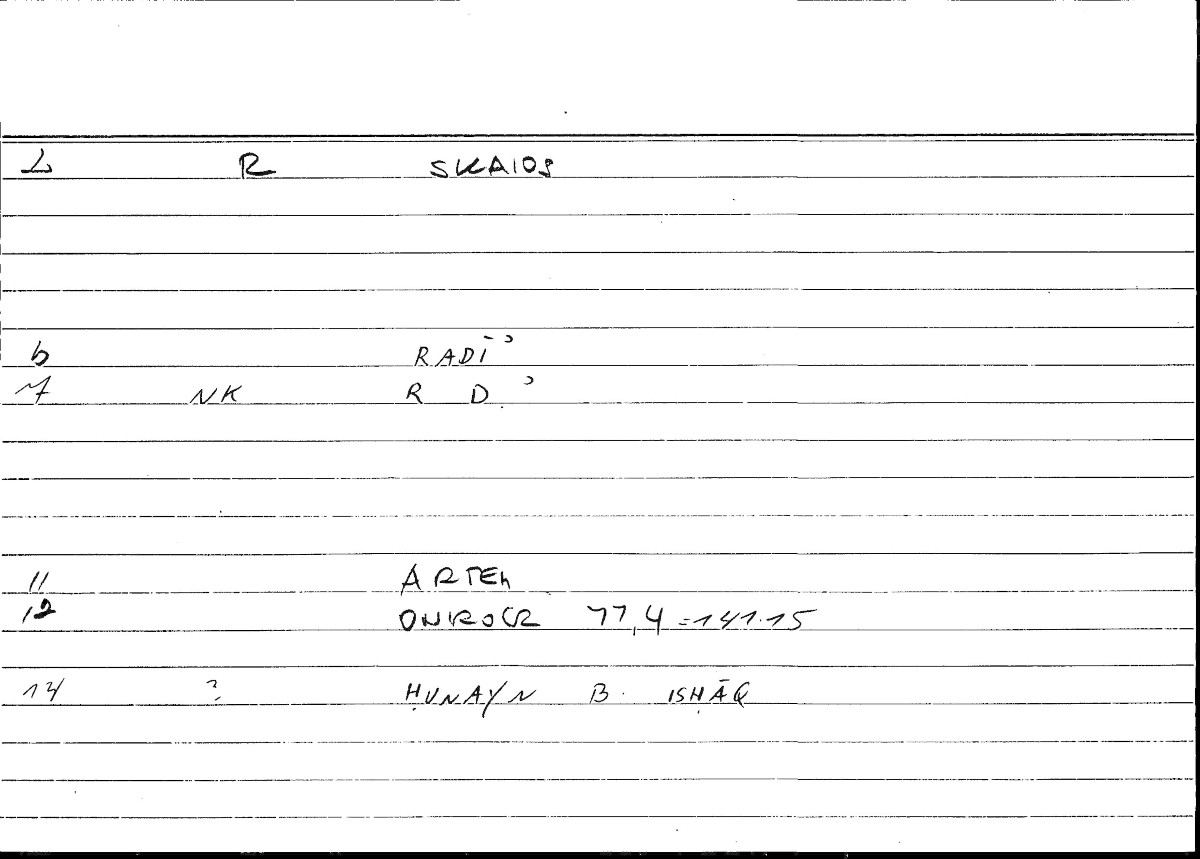 R SKAIOS
6 RADĪʾ
7 NK R Ḍ ʾ
11 ARTEM
12 ONIROCR 77,4 = 141.15
14 ? ḤUNAYN B. ISḤĀQ